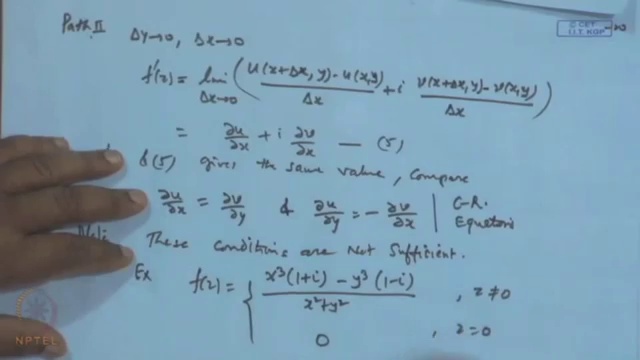 Path II Δy→0, Δx→0
© CET
I.I.T. KGP
f'(z) = lim Δx→0 ( (u(x+Δx, y) - u(x,y))/Δx + i (v(x+Δx, y) - v(x,y))/Δx )
= ∂u/∂x + i ∂v/∂x — (5)
& (5) gives the same value, compare
∂u/∂x = ∂v/∂y & ∂u/∂y = - ∂v/∂x | C-R. Equations
Note These conditions are Not sufficient.
Ex f(z) = { (x³(1+i) - y³(1-i))/(x²+y²) , z≠0
0 , z=0
NPTEL